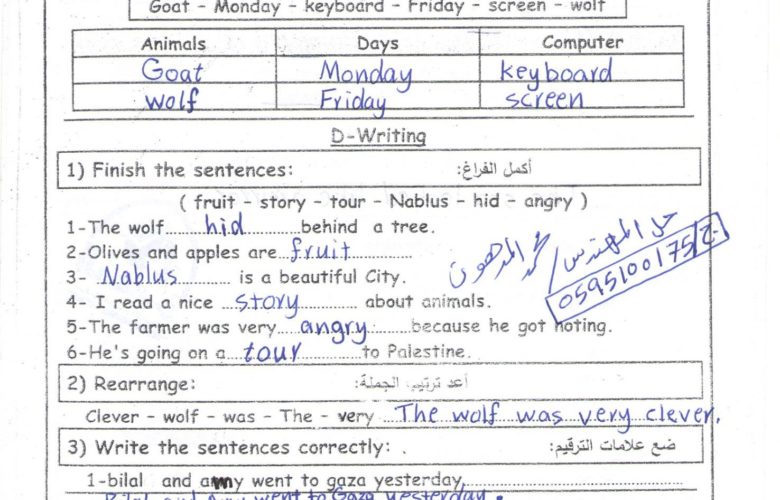 Goat - Monday - keyboard - Friday - screen - wolf
Animals Days Computer
Goat Monday keyboard
wolf Friday screen
D-Writing
1) Finish the sentences: أكمل الفراغ:
( fruit - story - tour - Nablus - hid - angry )
1-The wolf....hid..........behind a tree.
2-Olives and apples are..fruit............
3- ..Nablus........ is a beautiful City.
4- I read a nice ..story.......... about animals.
حل المهندس/ محمد المدهون
ج/0595100175
5-The farmer was very....angry.......because he got noting.
6-He's going on a...tour...........to Palestine.
2) Rearrange: أعد ترتيب الجملة:
Clever - wolf - was - The - very ..The wolf was very clever.
3) Write the sentences correctly: . ضع علامات الترقيم:
1-bilal and amny went to gaza yesterday,
went to Gaza yesterday.